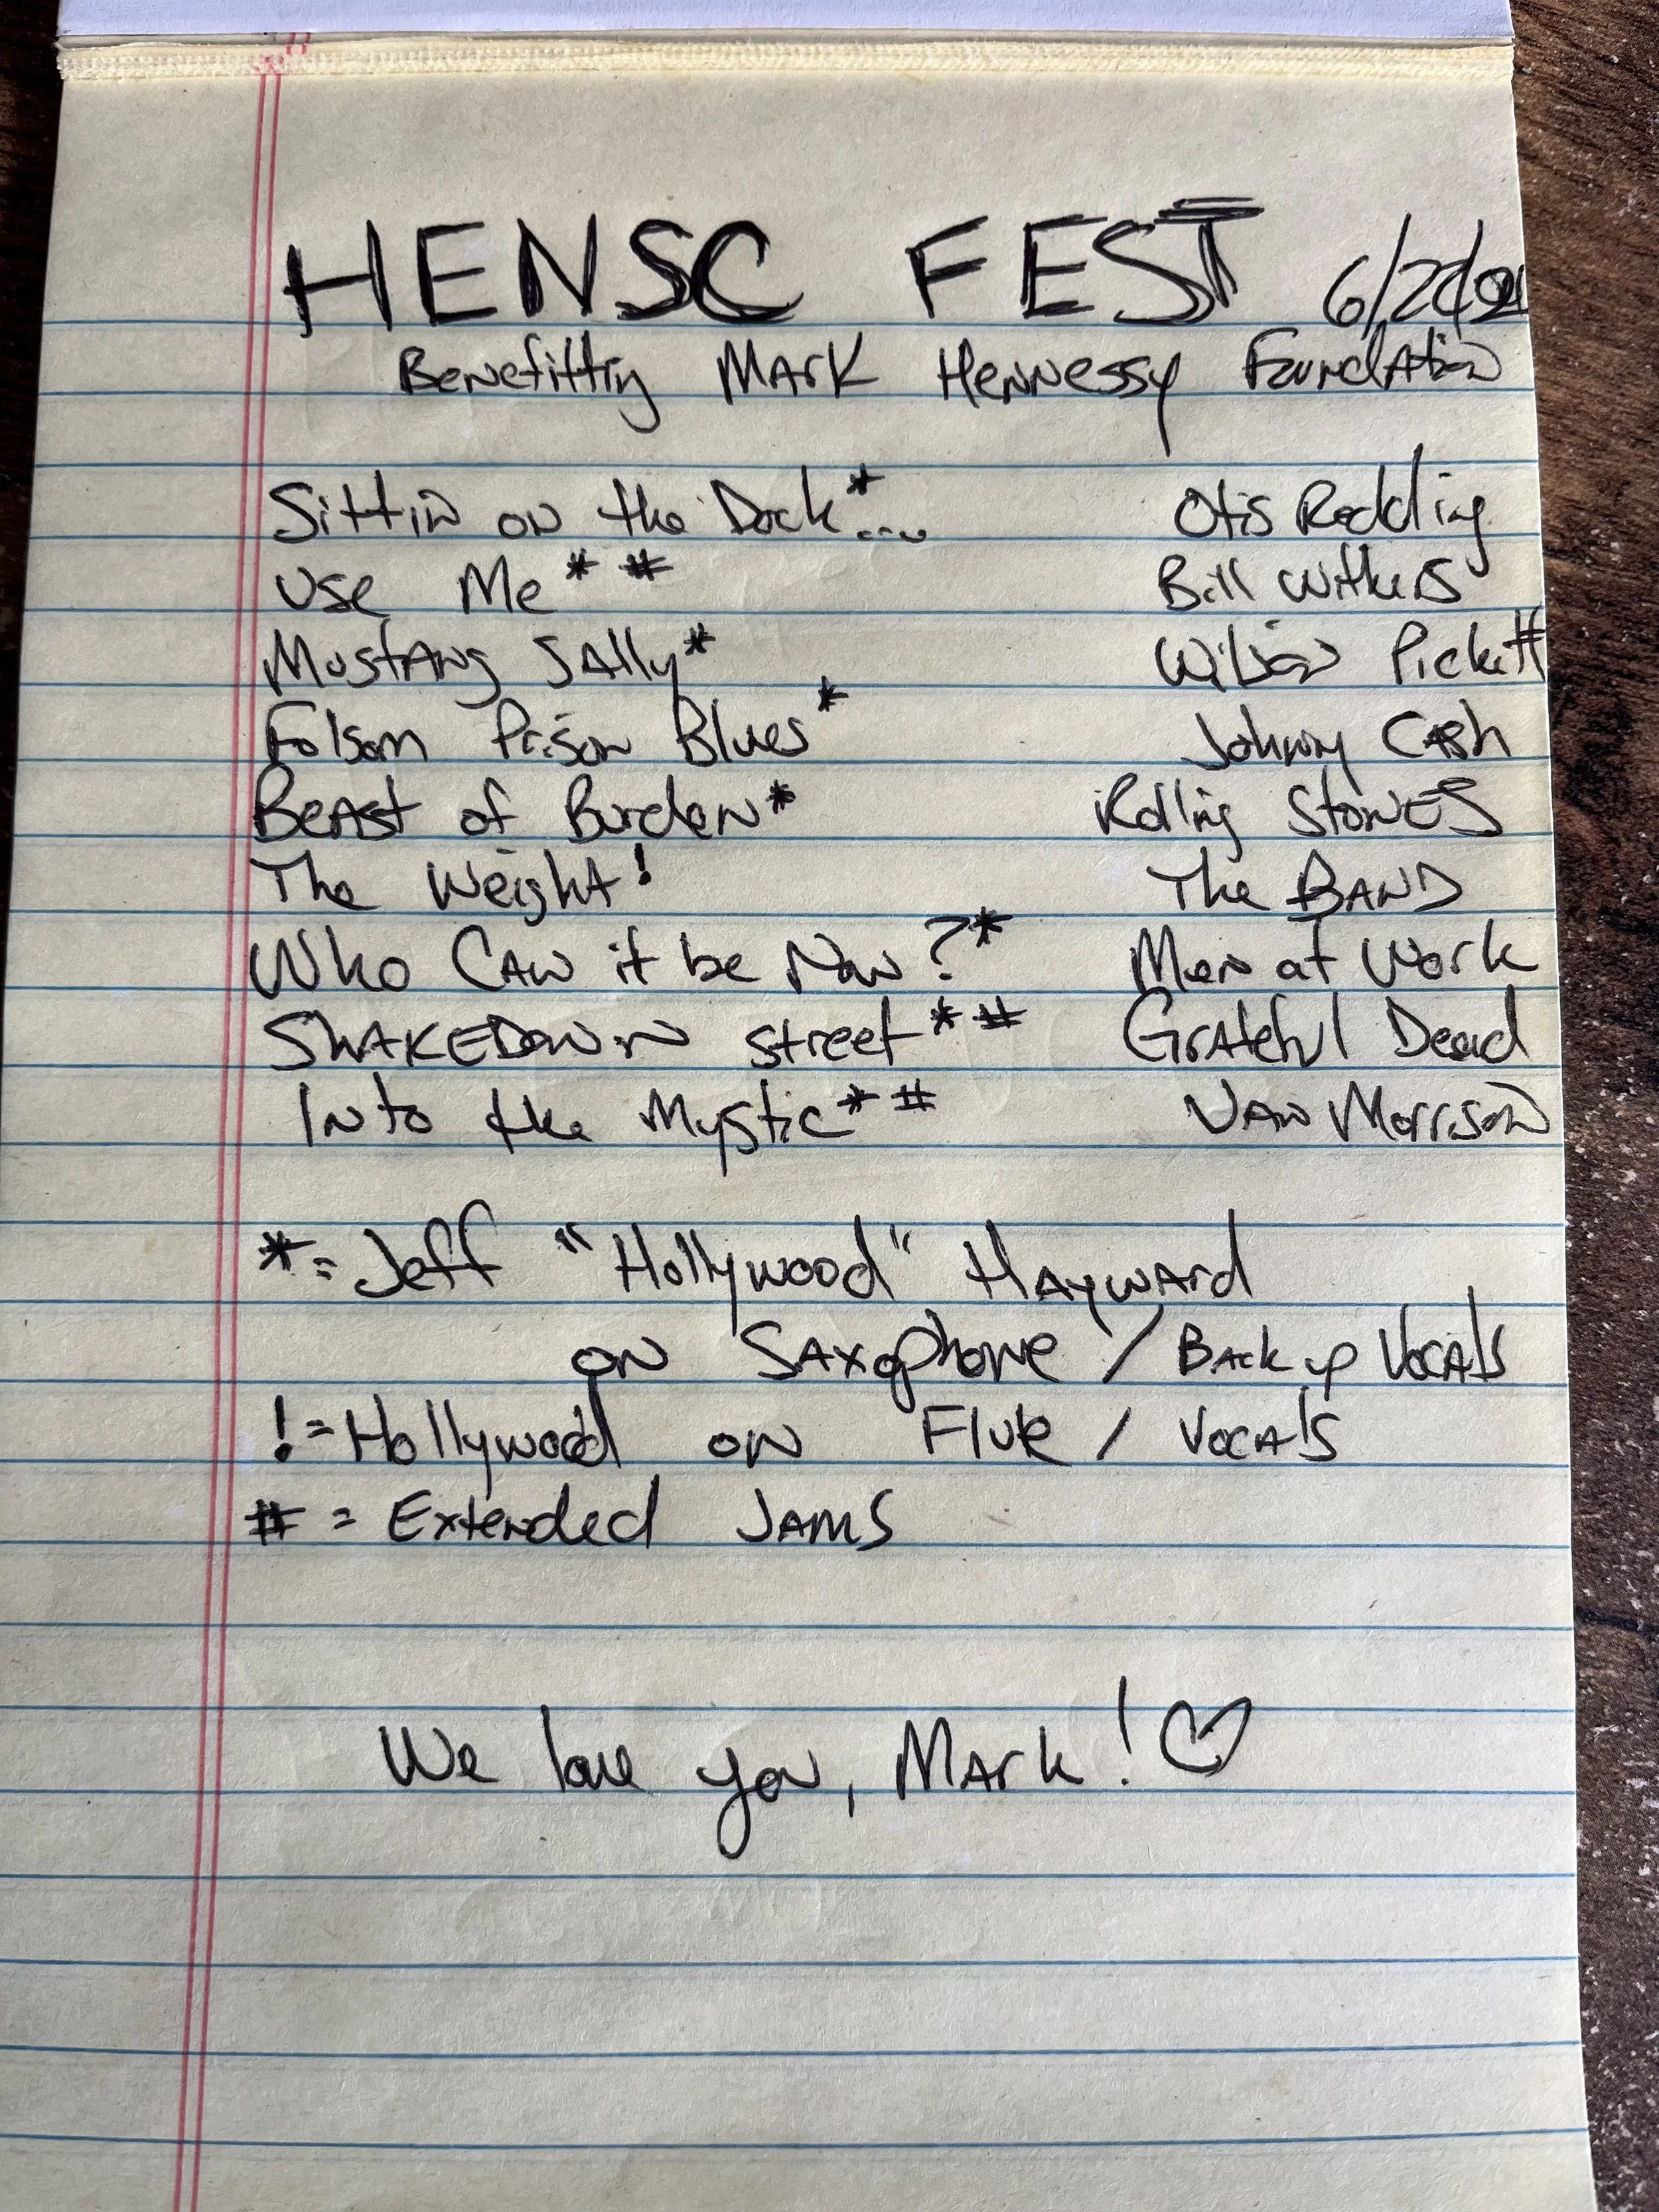 HENSC FEST
Benefitting Mark Hennessy Foundation
Sittin on the Dock*... Otis Redding
Use Me* # Bill Withers
Mustang Sally* Wilson Pickett
Folsom Prison Blues* Johnny Cash
Beast of Burden* Rolling Stones
The Weight! The BAND
Who Can it be Now?* Men at Work
SHAKEDOWN Street* # Grateful Dead
Into the Mystic* # Van Morrison
*= Jeff "Hollywood" Hayward
on Saxophone / Back up Vocals
!= Hollywood on Flute / Vocals
# = Extended Jams
We love you, Mark! ♡